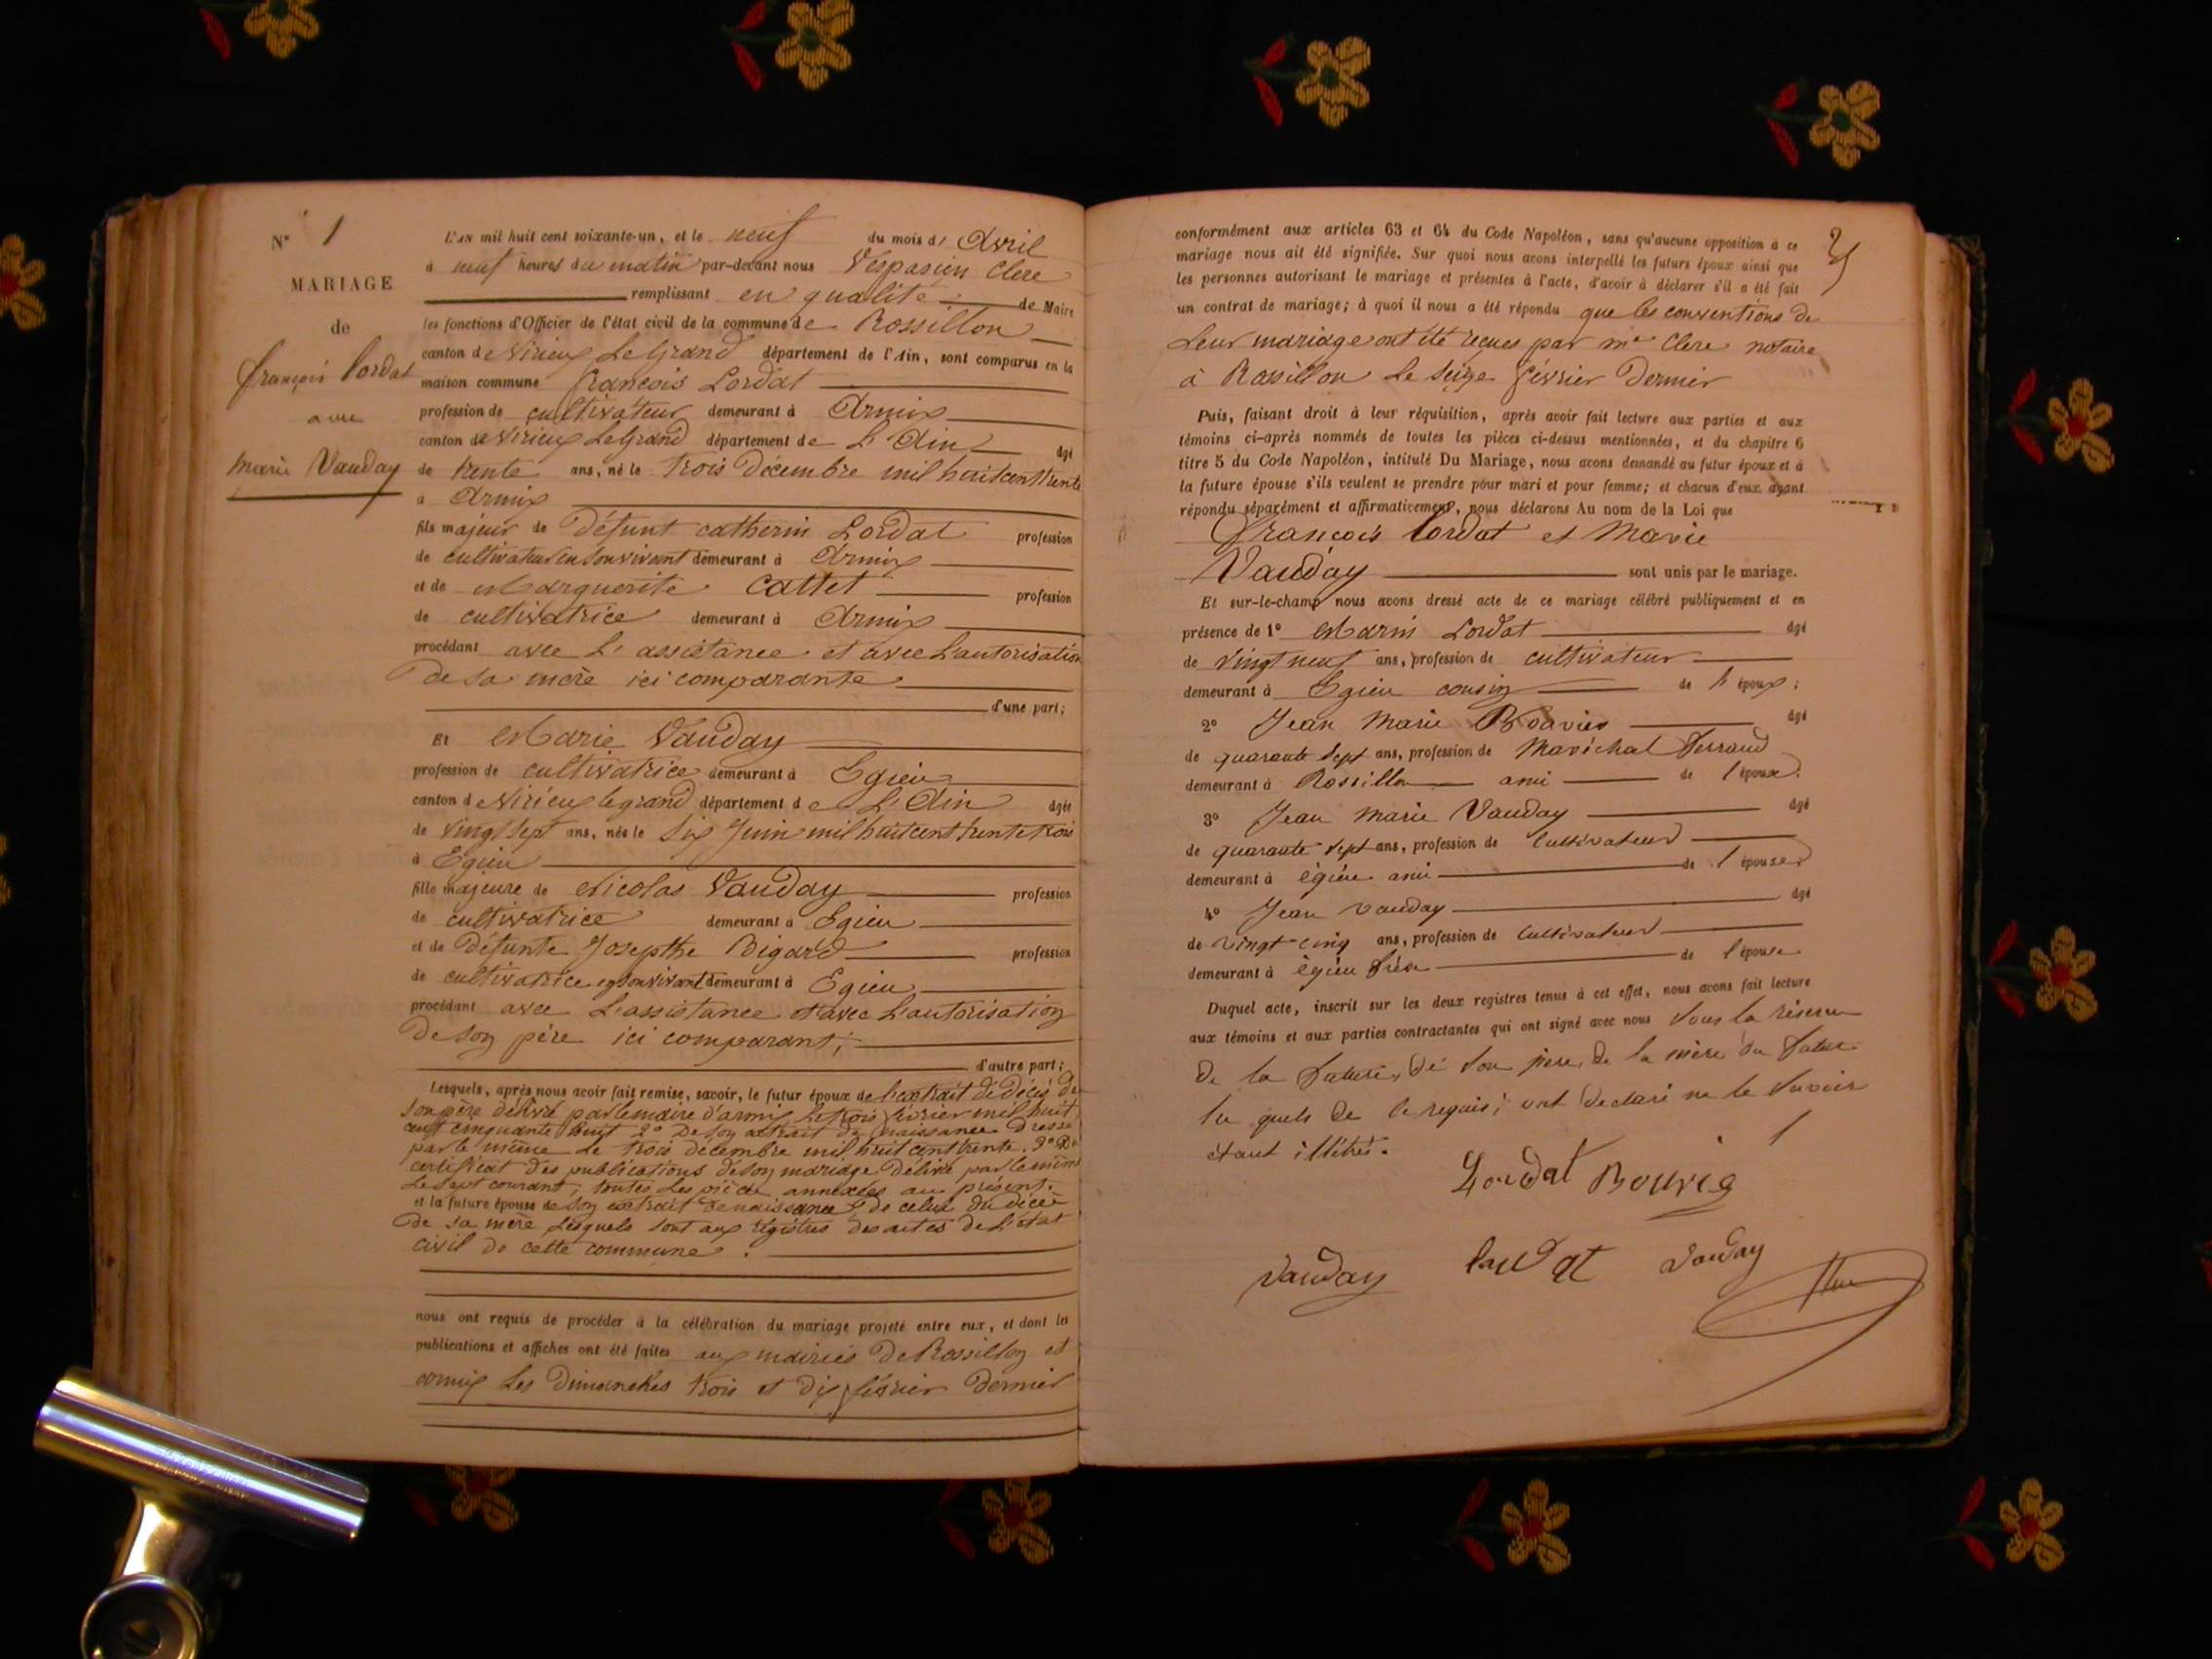 N° 1
MARIAGE
de
françois Lordat
avec
marie Vauday
L'AN mil huit cent soixante-un, et le neuf du mois d' Avril
à neuf heures du matin par-devant nous Vespasien Clerc
remplissant en qualité de Maire
les fonctions d'Officier de l'état civil de la commune de Rossillon
canton de Virieu LeGrand département de l'Ain, sont comparus en la
maison commune françois Lordat
profession de cultivateur demeurant à Armix
canton de Virieu LeGrand département de L'Ain âgé
de trente ans, né le trois Décembre mil huit cent trente
à Armix
fils majeur de Défunt catherin Lordat profession
de cultivateur en son vivant demeurant à Armix
et de Marguerite Cattet profession
de cultivatrice demeurant à Armix
procédant avec L'assistance et avec L'autorisation
De sa mère ici comparante
d'une part;
Et Marie Vauday
profession de cultivatrice demeurant à Egieu
canton de Virieu legrand département de L'Ain âgée
de vingt sept ans, née le six Juin mil huit cent trente trois
à Egieu
fille majeure de Nicolas Vauday profession
de cultivatrice demeurant à Egieu
et de Défunte Josepthe Bigard profession
de cultivatrice en son vivant demeurant à Egieu
procédant avec L'assistance et avec L'autorisation
De son père ici comparant;
d'autre part;
Lesquels, après nous avoir fait remise, savoir, le futur époux de l'extrait de Décès de
son père délivré par le maire d'armix Le trois février mil huit
cent cinquante huit 2° De son extrait de naissance Dressé
par le même Le trois décembre mil huit cent trente. 3° Du
certificat des publications de son mariage Délivré par le même
Le sept courant, toutes Les pièces annexées au présent.
et la future épouse de son extrait de naissance & de celui du décès
De sa mère Lesquels sont aux régistres des actes de L'état
civil de cette commune.
nous ont requis de procéder à la célébration du mariage projeté entre eux, et dont les
publications et affiches ont été faites aux mairies De Rossillon et
armix Les Dimanches trois et dix février Dernier
3
conformément aux articles 63 et 64 du Code Napoléon, sans qu'aucune opposition à ce
mariage nous ait été signifiée. Sur quoi nous avons interpellé les futurs époux ainsi que
les personnes autorisant le mariage et présentes à l'acte, d'avoir à déclarer s'il a été fait
un contrat de mariage; à quoi il nous a été répondu que les conventions de
Leur mariage ont été reçues par me Clerc notaire
à Rossillon Le seize février Dernier
Puis, faisant droit à leur réquisition, après avoir fait lecture aux parties et aux
témoins ci-après nommés de toutes les pièces ci-dessus mentionnées, et du chapitre 6
titre 5 du Code Napoléon, intitulé Du Mariage, nous avons demandé au futur époux et à
la future épouse s'ils veulent se prendre pour mari et pour femme; et chacun d'eux ayant
répondu séparément et affirmativement, nous déclarons Au nom de la Loi que
François Lordat et Marie
Vauday sont unis par le mariage.
Et sur-le-champ nous avons dressé acte de ce mariage célébré publiquement et en
présence de 1° Marin Lordat âgé
de vingt neuf ans, profession de cultivateur
demeurant à Egieu cousin de l'époux;
2° Jean Marie Bouvier âgé
de quarante sept ans, profession de Maréchal Ferrand
demeurant à Rossillon ami de l'époux;
3° Jean Marie Vauday âgé
de quarante sept ans, profession de Cultivateur
demeurant à égieu ami de l'épouse
4° Jean Vauday âgé
de vingt cinq ans, profession de Cultivateur
demeurant à égieu frère de l'épouse
Duquel acte, inscrit sur les deux registres tenus à cet effet, nous avons fait lecture
aux témoins et aux parties contractantes qui ont signé avec nous sous la réserve
De la future, De son père, De la mère du futur
les quels De ce requis, ont Declaré ne le savoir
étant illétrés.
Lordat Bouvié
Vauday Lordat Vauday